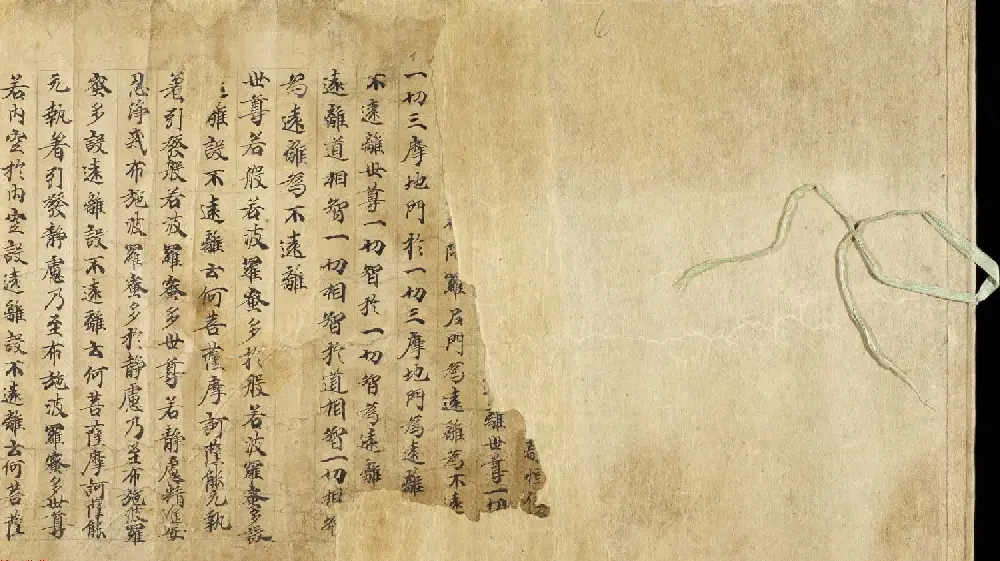 離世尊一切
陀羅尼門為遠離為不遠
一切三摩地門於一切三摩地門為遠離
不遠離世尊一切智於一切智為遠離
遠離道相智一切相智於道相智一切相智
為遠離為不遠離
世尊若般若波羅蜜多於般若波羅蜜多設
離設不遠離云何菩薩摩訶薩能无執
著引發般若波羅蜜多世尊若靜慮精進安
忍淨戒布施波羅蜜多於靜慮乃至布施波羅
蜜多設遠離設不遠離云何菩薩摩訶薩能
无執著引發靜慮乃至布施波羅蜜多世尊
若內空於內空設遠離設不遠離云何菩薩
6